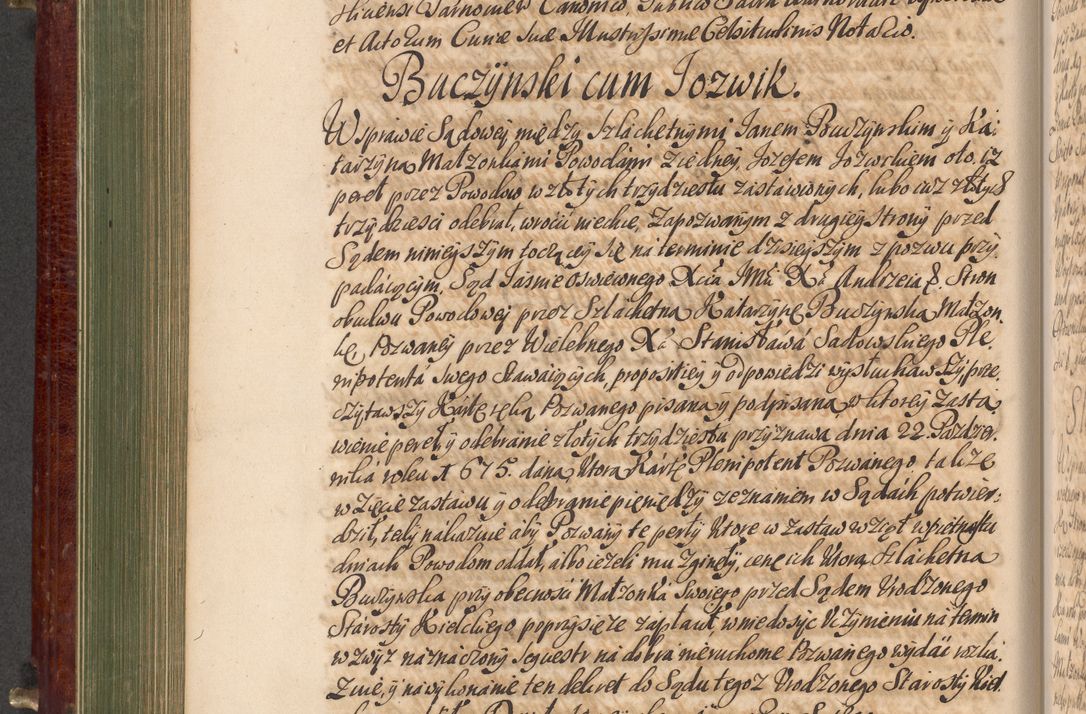 et Actorum Curiæ Suæ Illustrissimæ Celsitudinis Notario.
Buczÿnski cum Jozwik.
W sprawie Sądowej między Szlachetnymi Janem Buczynskim ÿ Ka:
tarzÿną Małzonkami Powodami z iednej, Jozefem Jozwikiem oto, iz
pereł przez Powodow w złotych trzydziestu zastawionych, lubo iuz złotych
trzydziesci odebrał, wrocić niechce, Zapozwanym z drugiey strony przed
Sądem ninieyszym toczącey się na terminie dzisieyszym z pozwu przy
padaiącym. Sąd Jasnie Oswieconego Xcia JMci Xa Andrzeia &. Stron
obudwu Powodowej przez Szlachetną Katarzynę Buczynską Małzon,
kę, Pozwaney przez Wielebnego Xa Stanisława Sadowskiego Ple,
nipotenta swego stawaiących, propositiey ÿ odpowiedzi wysłuchawszÿ, prze,
czytawszy Kartę ręką Pozwanego pisaną ÿ podpisaną w ktorey zasta,
wienie pereł, ÿ odebranie złotych trzydziestu przyznawa dnia 22. Pazdzier,
nika roku 1675. daną, ktorą Kartę Plenipotent Pozwanego także
wzięcie zastawu ÿ odebranie pieniędzy zeznaniem w Sądach potwier:
dził, tedy nakazuie aby Pozwany te perły ktore w zastaw wziął w piętnastu
dniach Powodom oddał, albo iezeli mu zginęły, cenę ich ktorą Szlachetna
Buczynska przy obecnosci Małzonka swoiego przed Sądem Urodzonego
Starosty Kieleckiego poprzysięze zapłacił, w niedosyc uczynieniu na termin
wzwyz naznaczony sequestr na dobra nieruchome Pozwanego wydać rozka,
zuie, ÿ na wykonanie ten dekret do Sądu tegoz Urodzonego Starosty Kiel.